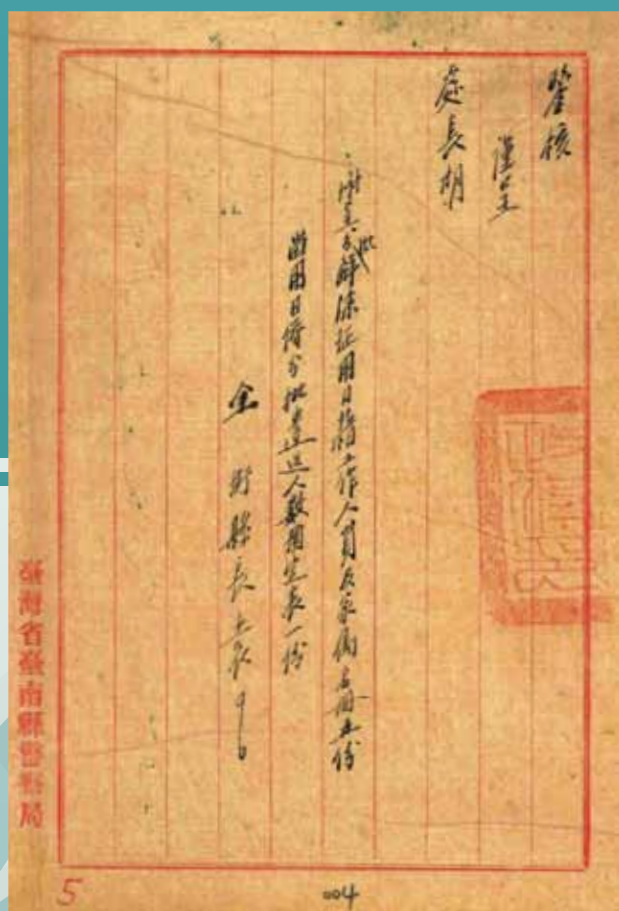 鑒核
謹呈
處長胡
附呈分批解除征用日籍工作人員及家屬名冊五份
留用日僑分批遣送人數預定表一份
縣長
臺灣省臺南縣警察局
5
004